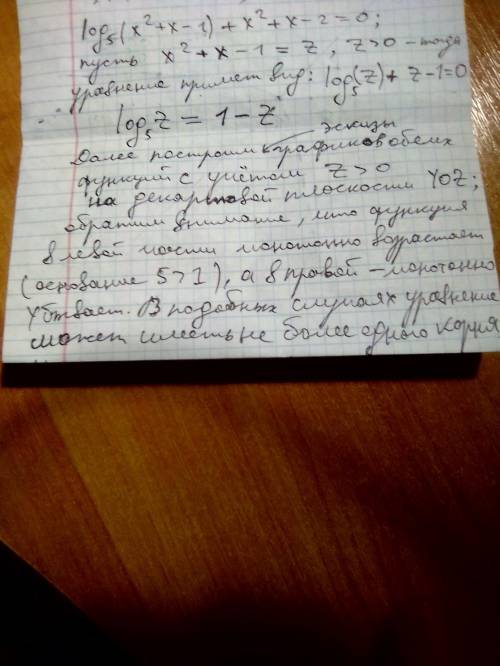 log₅(x²+x-1)+x²+x-2=0;
пусть x²+x-1=z, z>0 - тогда
уравнение примет вид: log₅(z)+z-1=0
log₅z=1-z
эскизы
Далее построим графиков обеих
функций с учётом z>0
на декартовой плоскости YOZ;
обратим внимание, что функция
в левой части монотонно возрастает
(основание 5>1), а в правой - монотонно
убывает. В подобных случаях уравнение
может иметь не более одного корня